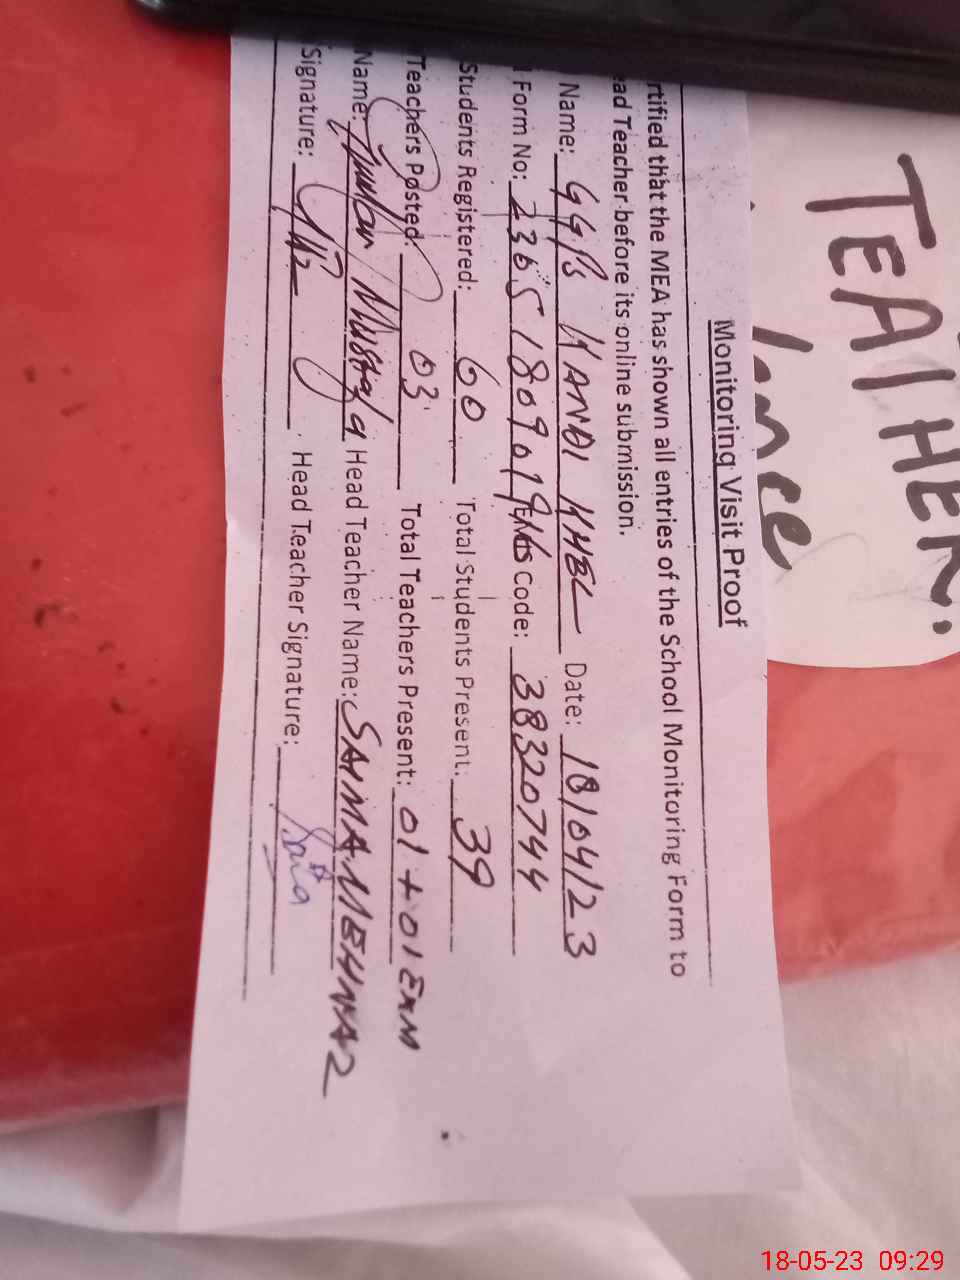 TEAIHER.
Monitoring Visit Proof
rtified that the MEA has shown all entries of the School Monitoring Form to
ead Teacher before its online submission.
Name: GGPS KANDI KHEL Date: 18/04/23
Form No: 23651809019 EMIS Code: 38320744
Students Registered: 60 Total Students Present: 39
Teachers Posted: 03 Total Teachers Present: 01 + 01 EXM
Name: Mustafa Head Teacher Name: SAIMA MEHNAZ
Signature: Head Teacher Signature: Saima
18-05-23 09:29